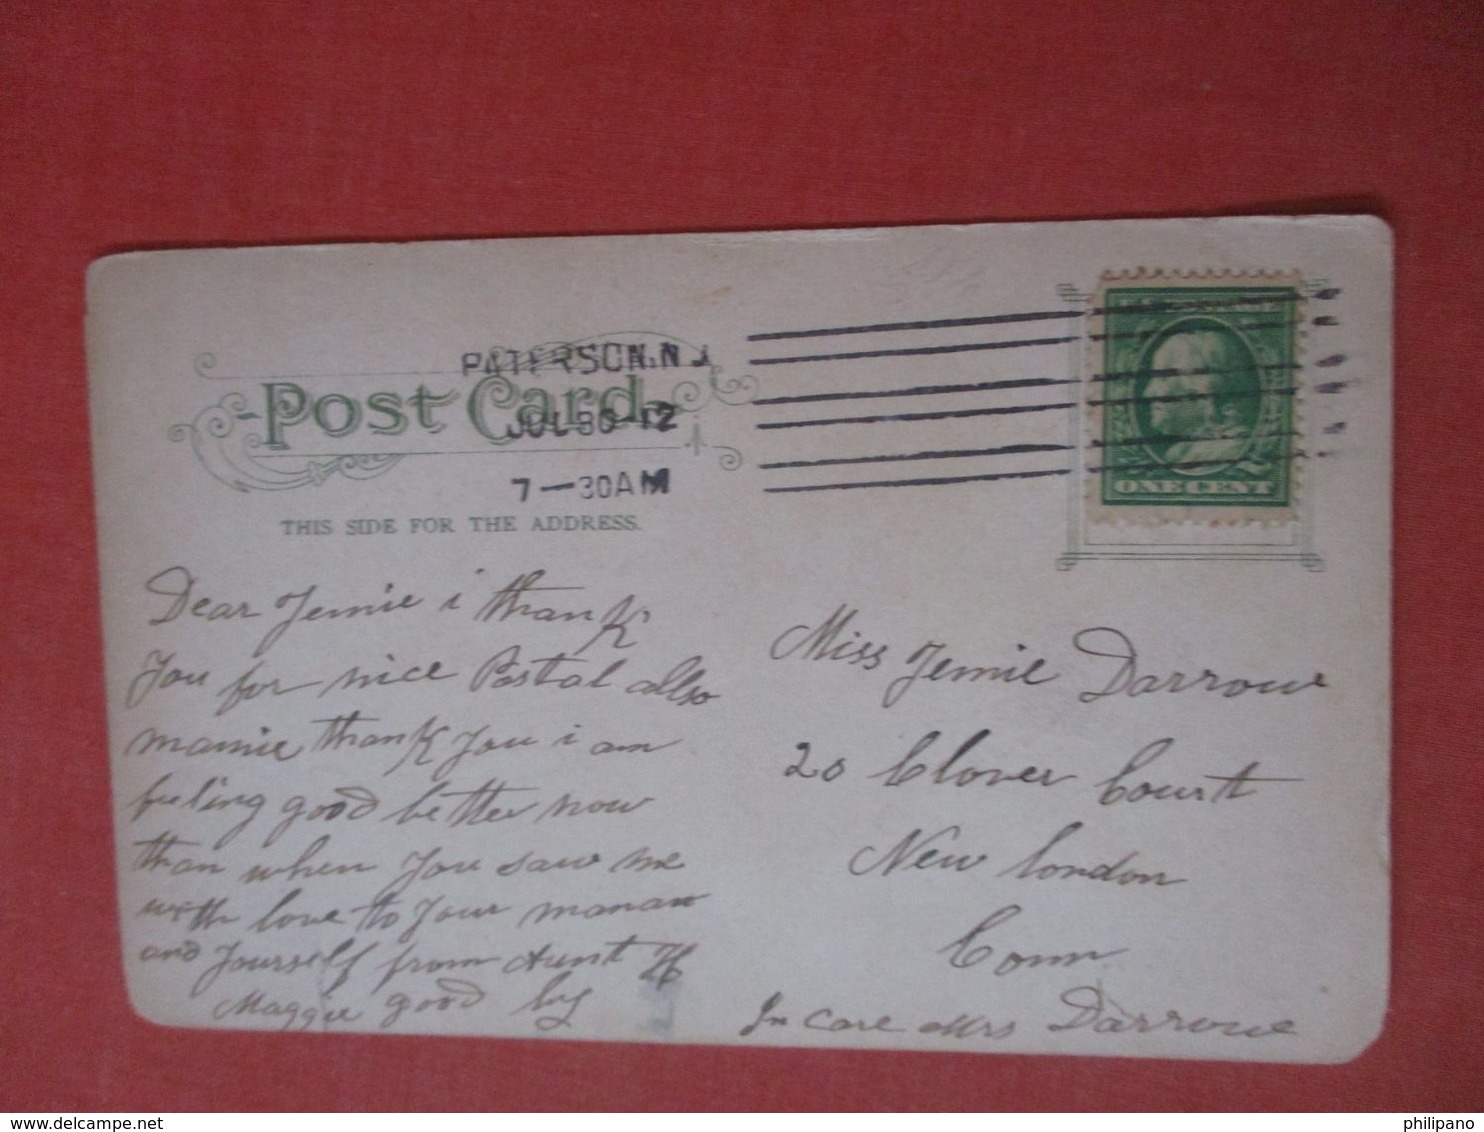 PATERSON, N.J.
Post Card.
JUL 30-12
7-30AM
THIS SIDE FOR THE ADDRESS.
ONE CENT
Dear Jennie i thank
You for nice Postal allso
mamie thank you i am
feeling good better now
than when you saw me
with love to your maman
and yourself from Aunt
Maggie good by
Miss Jennie Darrow
20 Clover Court
New London
Conn
In care Mrs Darrow
www.delcampe.net
philipano